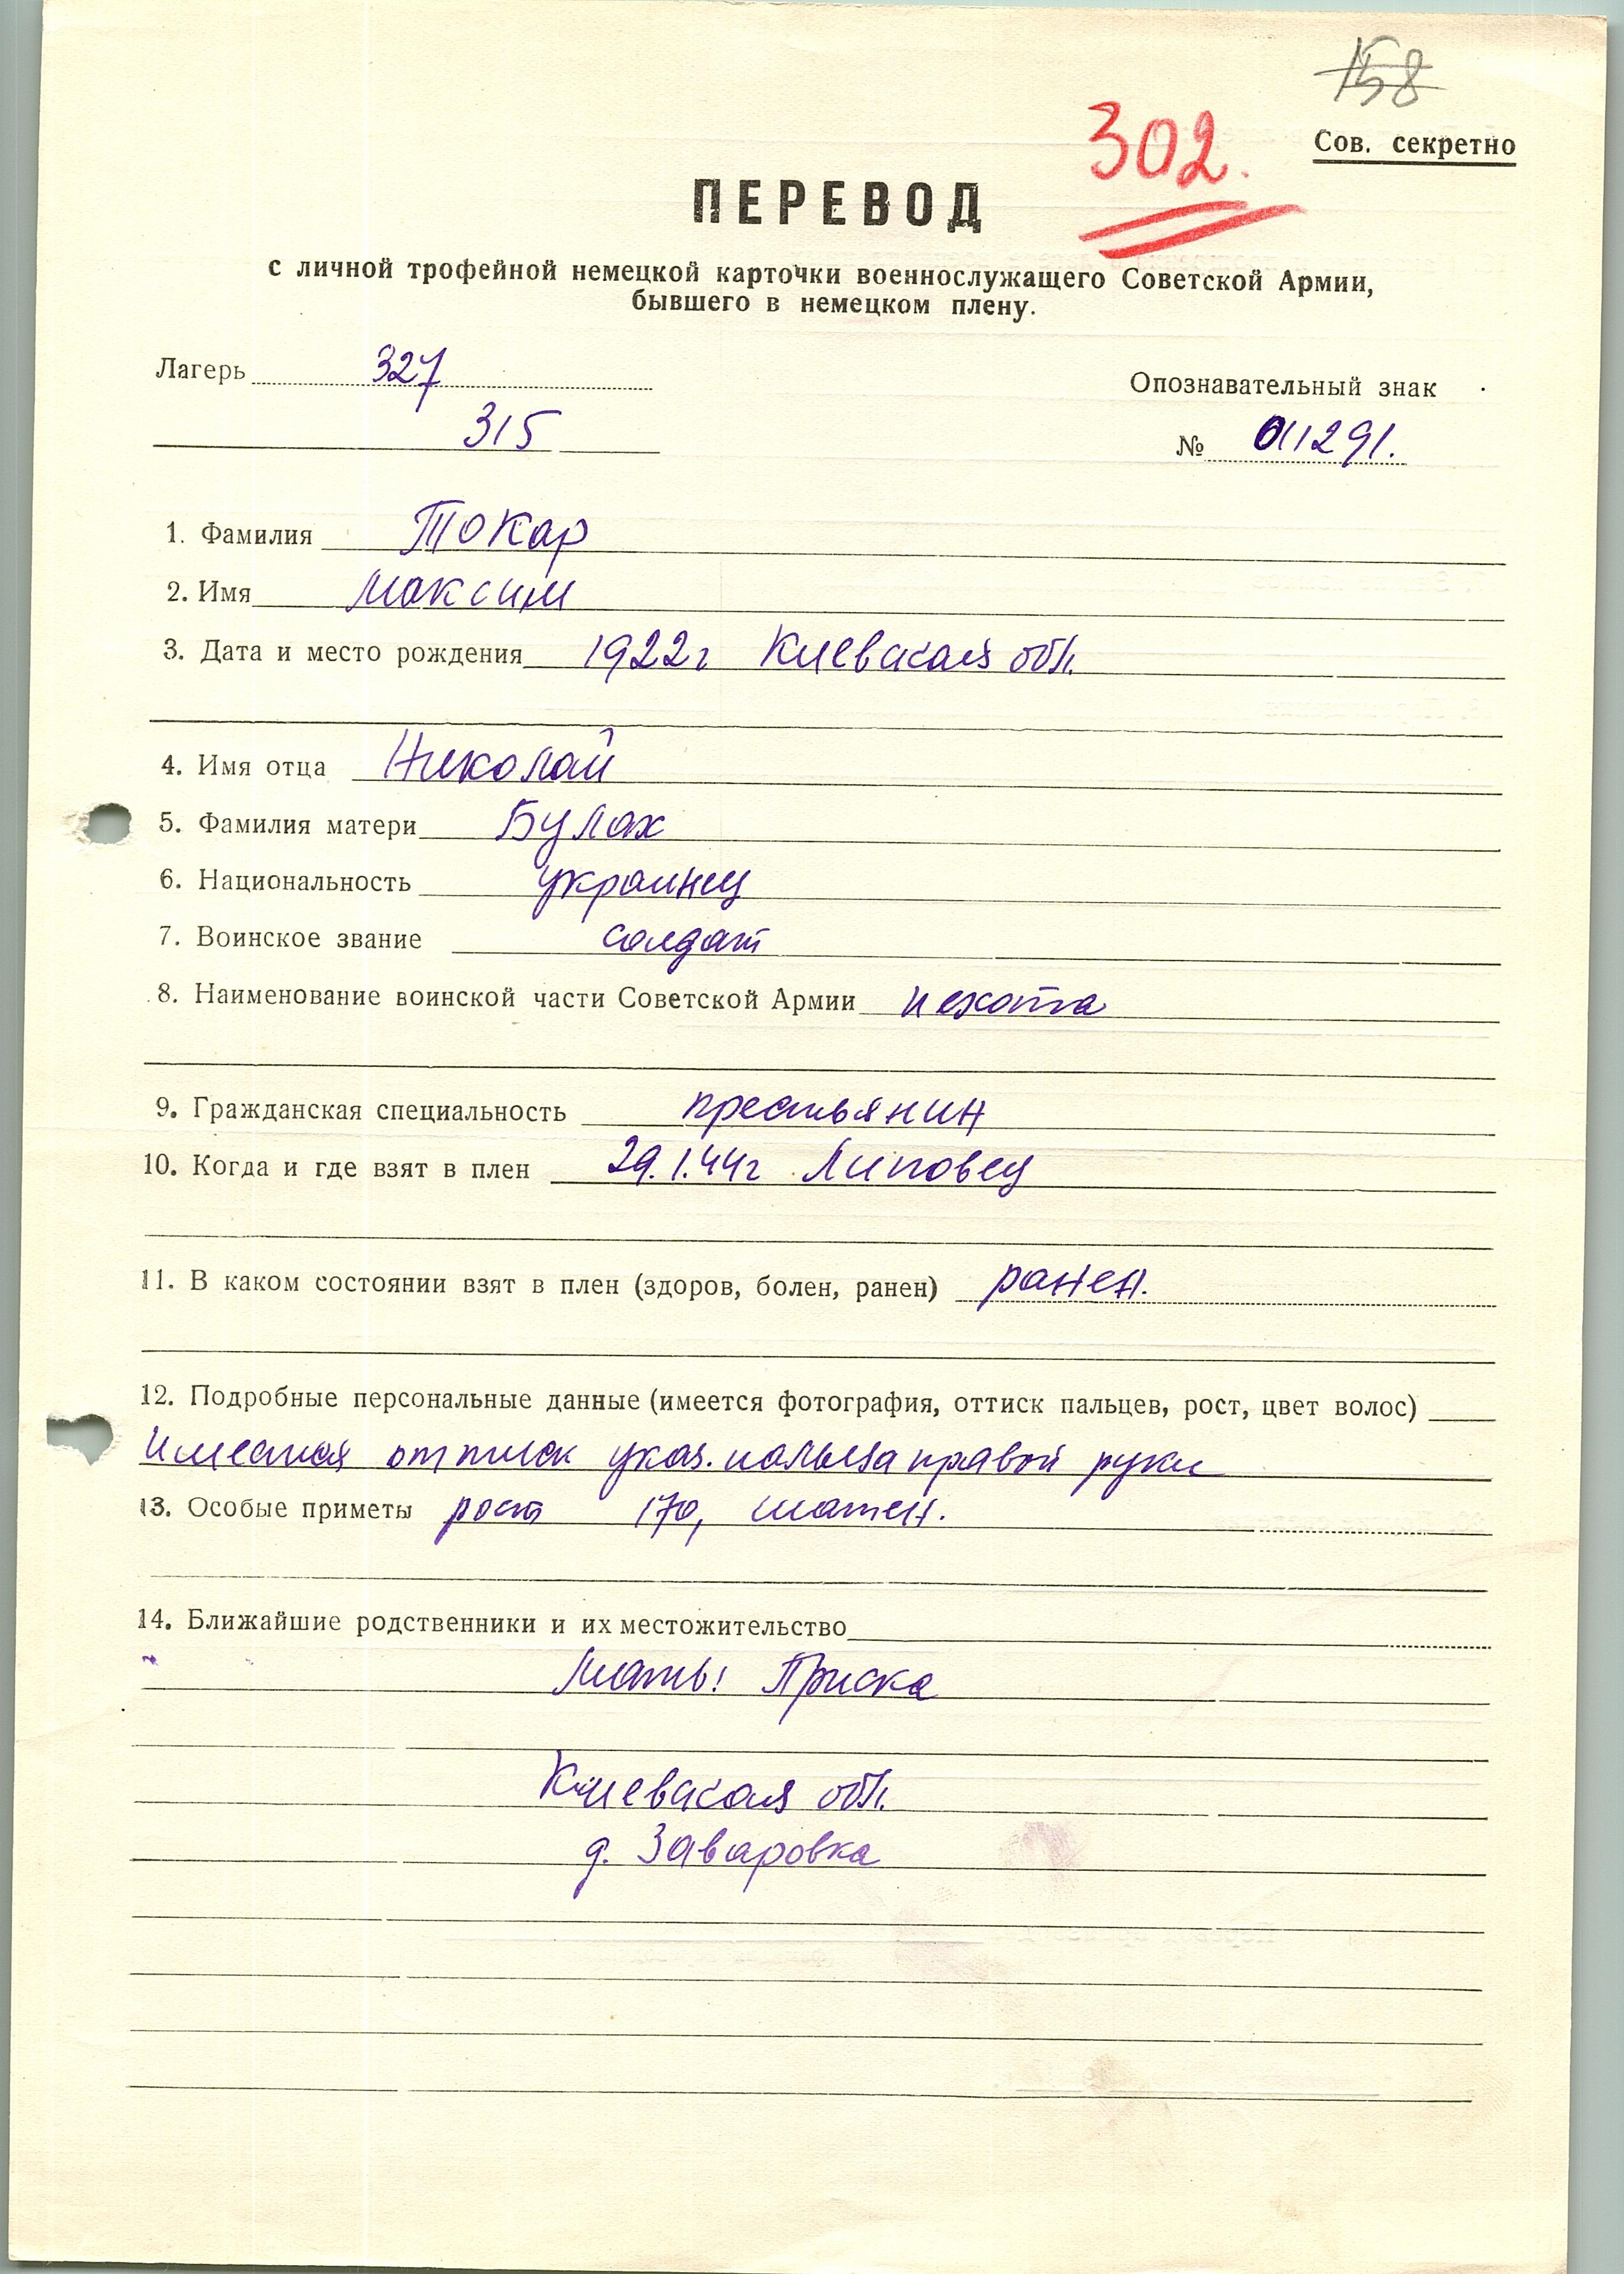 158
302.
Сов. секретно
ПЕРЕВОД
с личной трофейной немецкой карточки военнослужащего Советской Армии,
бывшего в немецком плену.
Лагерь 327
Опознавательный знак
315
№ 011291.
1. Фамилия Токар
2. Имя Максим
3. Дата и место рождения 1922г Киевская обл.
4. Имя отца Николай
5. Фамилия матери Булах
6. Национальность украинец
7. Воинское звание солдат
8. Наименование воинской части Советской Армии пехота
9. Гражданская специальность крестьянин
10. Когда и где взят в плен 29.1.44г Липовец
11. В каком состоянии взят в плен (здоров, болен, ранен) ранен.
12. Подробные персональные данные (имеется фотография, оттиск пальцев, рост, цвет волос)
Имеется оттиск указ. пальца правой руки
13. Особые приметы рост 170, шатен.
14. Ближайшие родственники и их местожительство
Мать: Приска
Киевская обл.
д. Заваровка